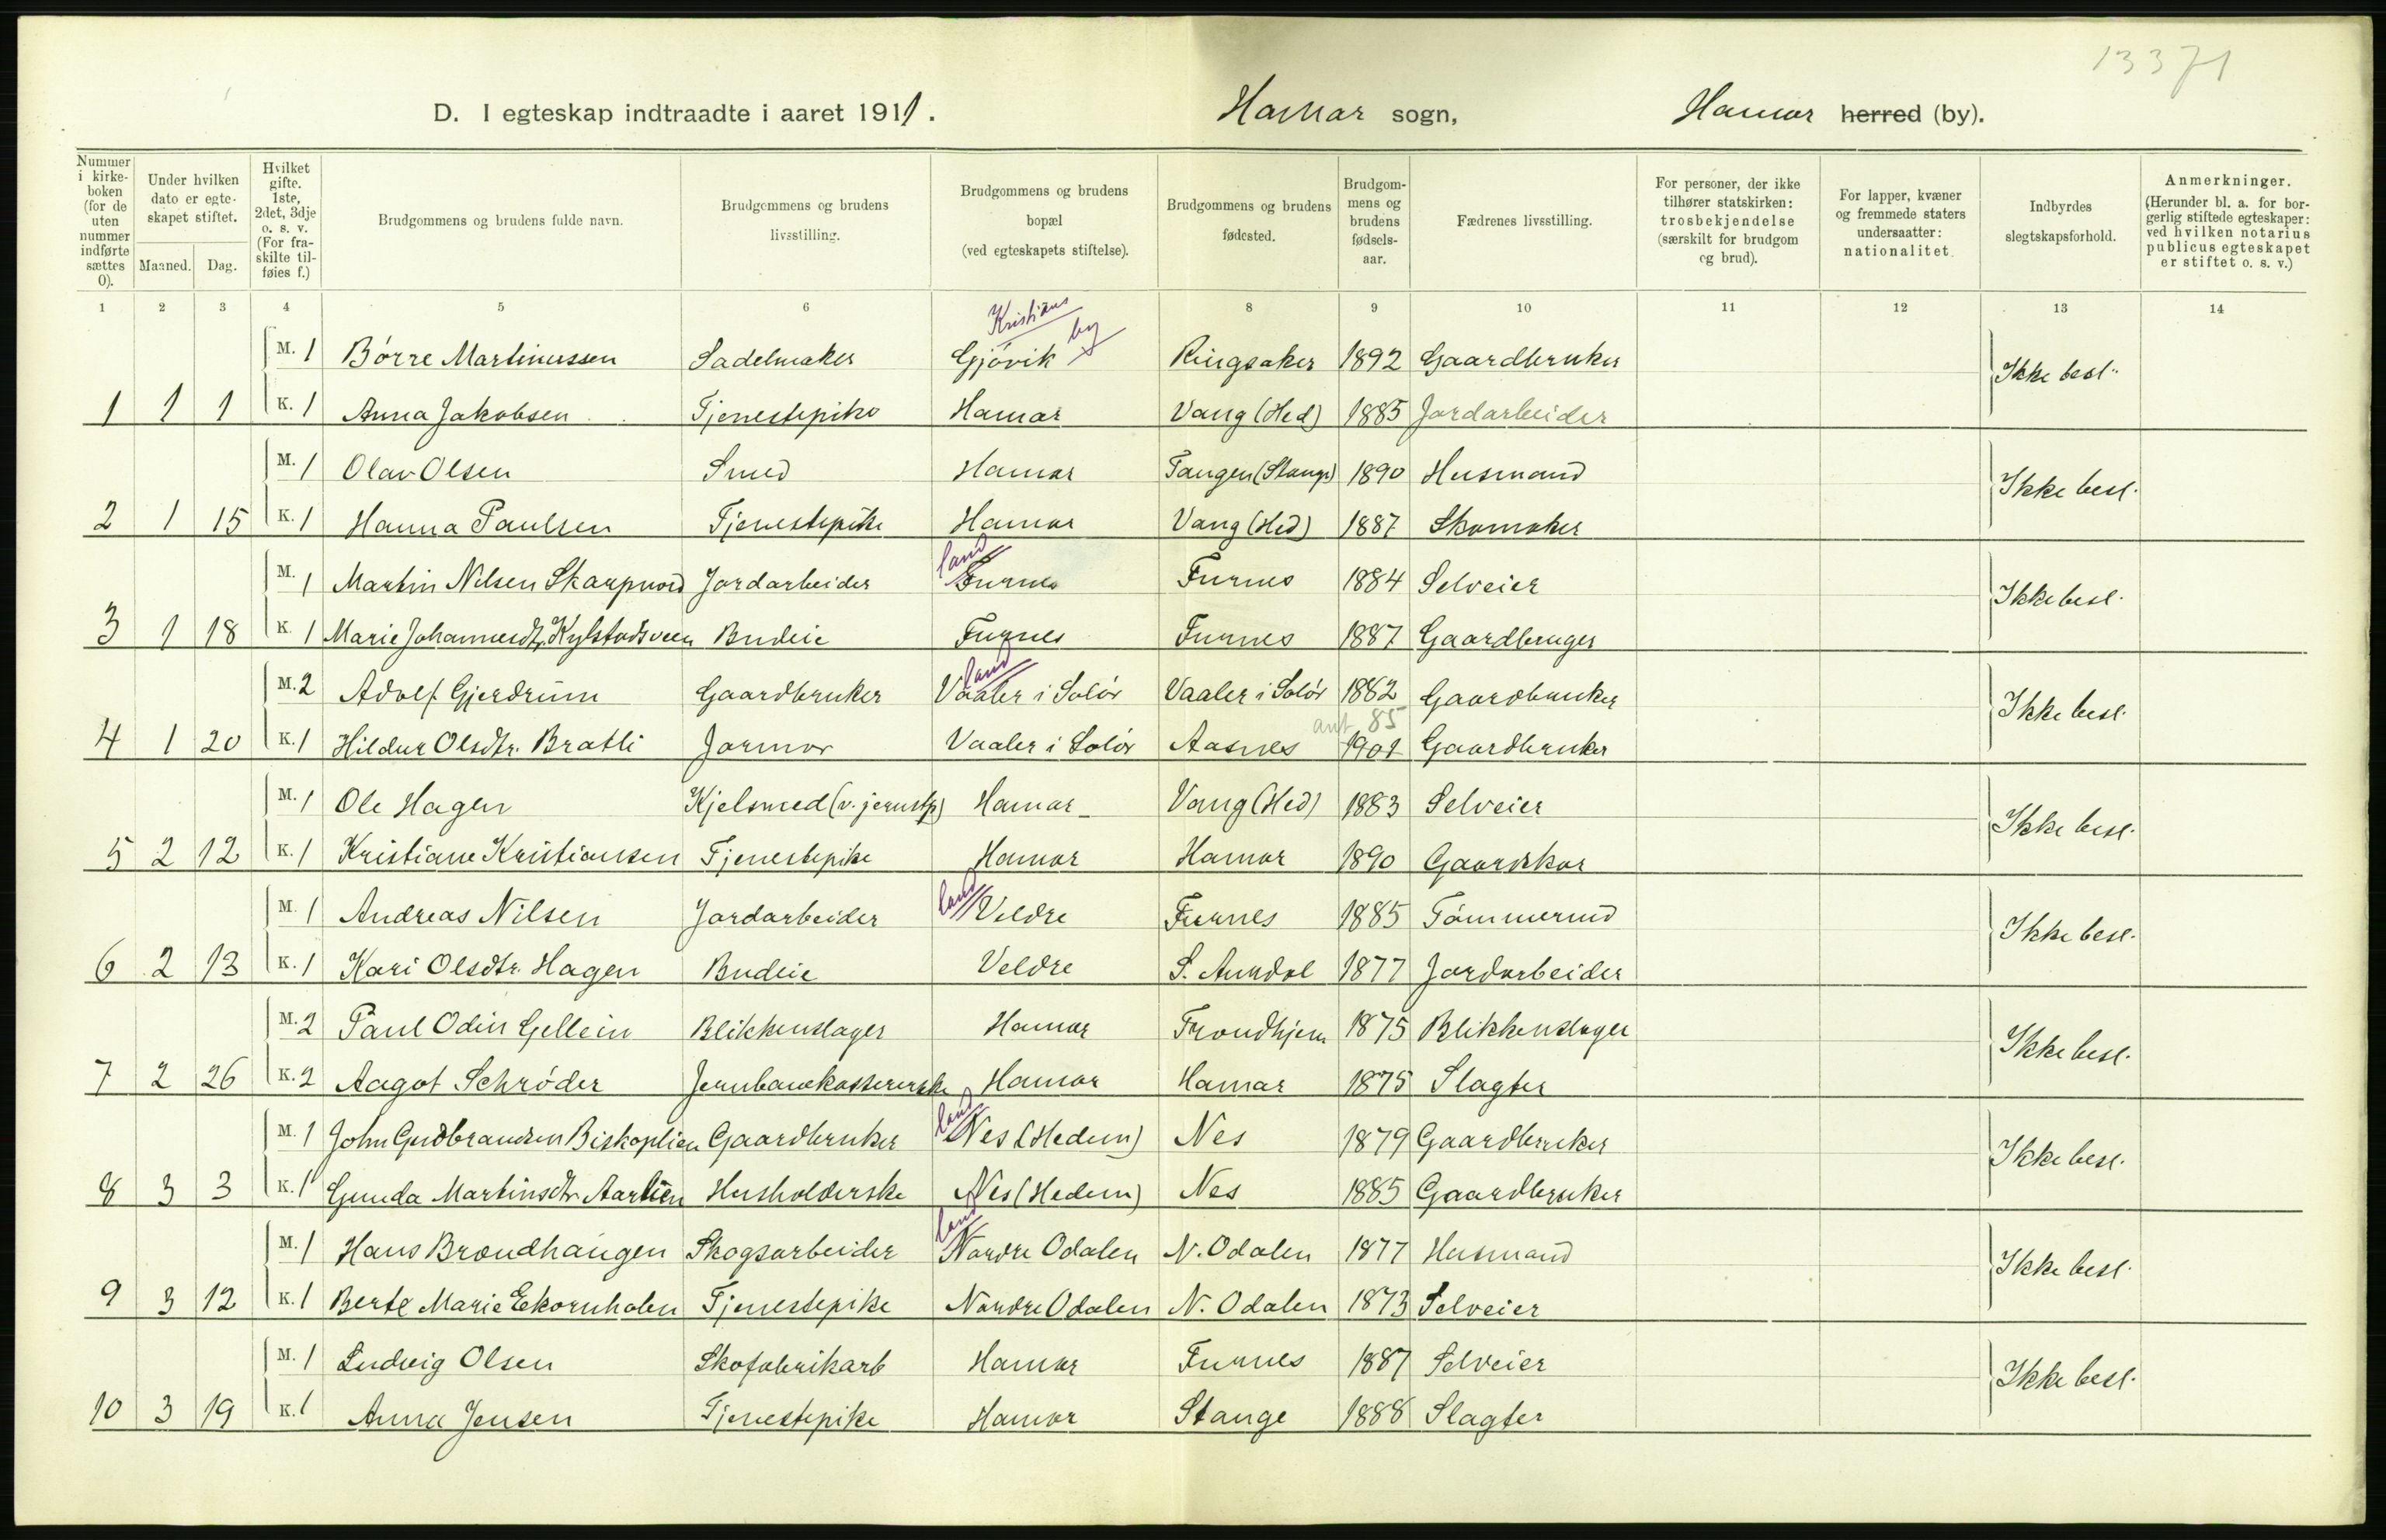 13371
D. I egteskap indtraadte i aaret 1911. Hamar sogn, Hamar herred (by).
Nummer i kirke-boken (for de uten nummer indførte sættes 0). Under hvilken dato er egte-skapet stiftet. Maaned. Dag. Hvilket gifte. 1ste, 2det, 3dje o. s. v. (For fra-skilte til-føies f.) Brudgommens og brudens fulde navn. Brudgommens og brudens livsstilling. Brudgommens og brudens bopæl (ved egteskapets stiftelse). Brudgommens og brudens fødested. Brudgom-mens og brudens fødsels-aar. Fædrenes livsstilling. For personer, der ikke tilhører statskirken: trosbekjendelse (særskilt for brudgom og brud). For lapper, kvæner og fremmede staters undersaatter: nationalitet. Indbyrdes slegtskapsforhold. Anmerkninger. (Herunder bl. a. for bor-gerlig stiftede egteskaper: ved hvilken notarius publicus egteskapet er stiftet o. s. v.)
1 2 3 4 5 6 7 8 9 10 11 12 13 14
Kristians by
M. 1 Børre Martinussen Sadelmaker Gjøvik Ringsaker 1892 Gaardbruker Ikke besl.
1 1 1 K. 1 Anna Jakobsen Tjenestepike Hamar Vang (Hed) 1885 Jordarbeider
M. 1 Olav Olsen Smed Hamar Tangen (Stange) 1890 Husmand Ikke besl.
2 1 15 K. 1 Hanna Paulsen Tjenestepike Hamar Vang (Hed) 1887 Skomaker
land
M. 1 Martin Nilsen Skarpnord Jordarbeider Furnes Furnes 1884 Selveier Ikke besl.
3 1 18 K. 1 Marie Johannesdtr. Kylstadsveen Budeie Furnes Furnes 1887 Gaardbruger
land
M. 2 Adolf Gjerdrum Gaardbruker Vaaler i Solør Vaaler i Solør 1882 Gaardbruker Ikke besl.
ant 85
4 1 20 K. 1 Hildur Olsdtr. Bratli Jormor Vaaler i Solør Aasnes 1901 Gaardbruker
M. 1 Ole Hagen Kjelsmed (v. jernstp) Hamar Vang (Hed) 1883 Selveier Ikke besl.
5 2 12 K. 1 Kristiane Kristiansen Tjenestepike Hamar Hamar 1890 Gaardskar
land
M. 1 Andreas Nilsen Jordarbeider Veldre Furnes 1885 Tømmermd Ikke besl.
6 2 13 K. 1 Kari Olsdtr. Hagen Budeie Veldre S. Aurdal 1877 Jordarbeider
M. 2 Paul Odin Gellein Blikkenslager Hamar Trondhjem 1875 Blikkenslager Ikke besl.
7 2 26 K. 2 Aagot Schrøder Jernbanekassererske Hamar Hamar 1875 Slagter
land
M. 1 John Gudbrandsen Biskoplien Gaardbruker Nes (Hedem) Nes 1879 Gaardbruker Ikke besl.
8 3 3 K. 1 Gunda Martinsdtr. Aarlien Husholderske Nes (Hedem) Nes 1885 Gaardbruker
land
M. 1 Hans Brændhaugen Skogsarbeider Nordre Odalen N. Odalen 1877 Husmand Ikke besl.
9 3 12 K. 1 Berte Marie Eekornholen Tjenestepike Nordre Odalen N. Odalen 1873 Selveier
M. 1 Ludvig Olsen Skofabrikarb Hamar Furnes 1887 Selveier Ikke besl.
10 3 19 K. 1 Anna Jensen Tjenestepike Hamar Stange 1888 Slagter